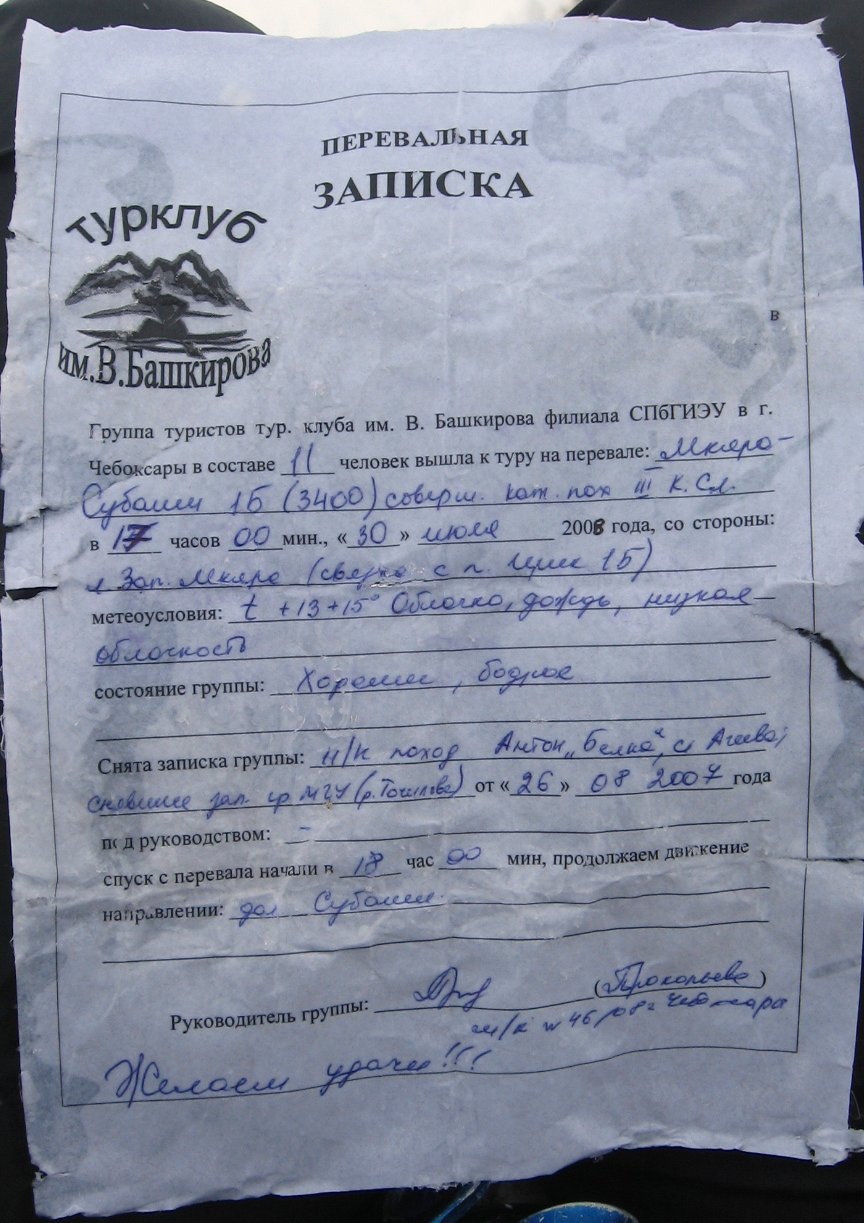 ПЕРЕВАЛЬНАЯ
ЗАПИСКА
турклуб
им.В.Башкирова
в
Группа туристов тур. клуба им. В. Башкирова филиала СПбГИЭУ в г.
Чебоксары в составе 11 человек вышла к туру на перевале: Мкяра-
Субаши 1Б (3400) соверш. кат. пох III к. сл.
в 17 часов 00 мин., «30» июля 2008 года, со стороны:
л Зап. Мкяра (сверху с п. 1Б)
метеоусловия: t +13+15° Облачно, дождь, низкая
облачность
состояние группы: Хорошее, бодрое
Снята записка группы: н/к поход Антон „Белка", с Агеева;
снявшие зап. гр МГУ (р. ) от «26» 08 2007 года
под руководством: –
спуск с перевала начали в 18 час 00 мин, продолжаем движение
направлении: дол Субаши
Руководитель группы: (Прокопьева)
м/к № 46/08г Чебоксары
Желаем удачи!!!